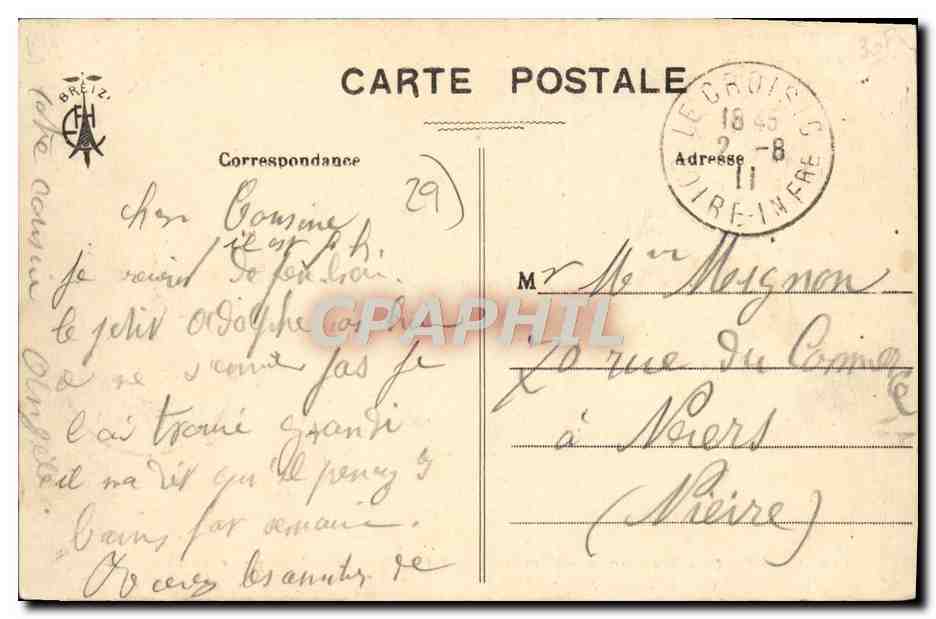 CARTE POSTALE
BREIZ'
Correspondance
Adresse
LE CROISIC
18 45
2 -8
11
LOIRE-INFRE
29)
cher Cousine,
il est
je viens de
le petit Adolphe
ne s'ennuie pas je
l'ai trouvé grandi
il ma dit qu'il prenez 3
bains par semaine.
Recevez les amitiés de
votre cousin
Mr Mignon
20 rue du Commerce
à Nevers
(Nièvre)
CPAPHIL